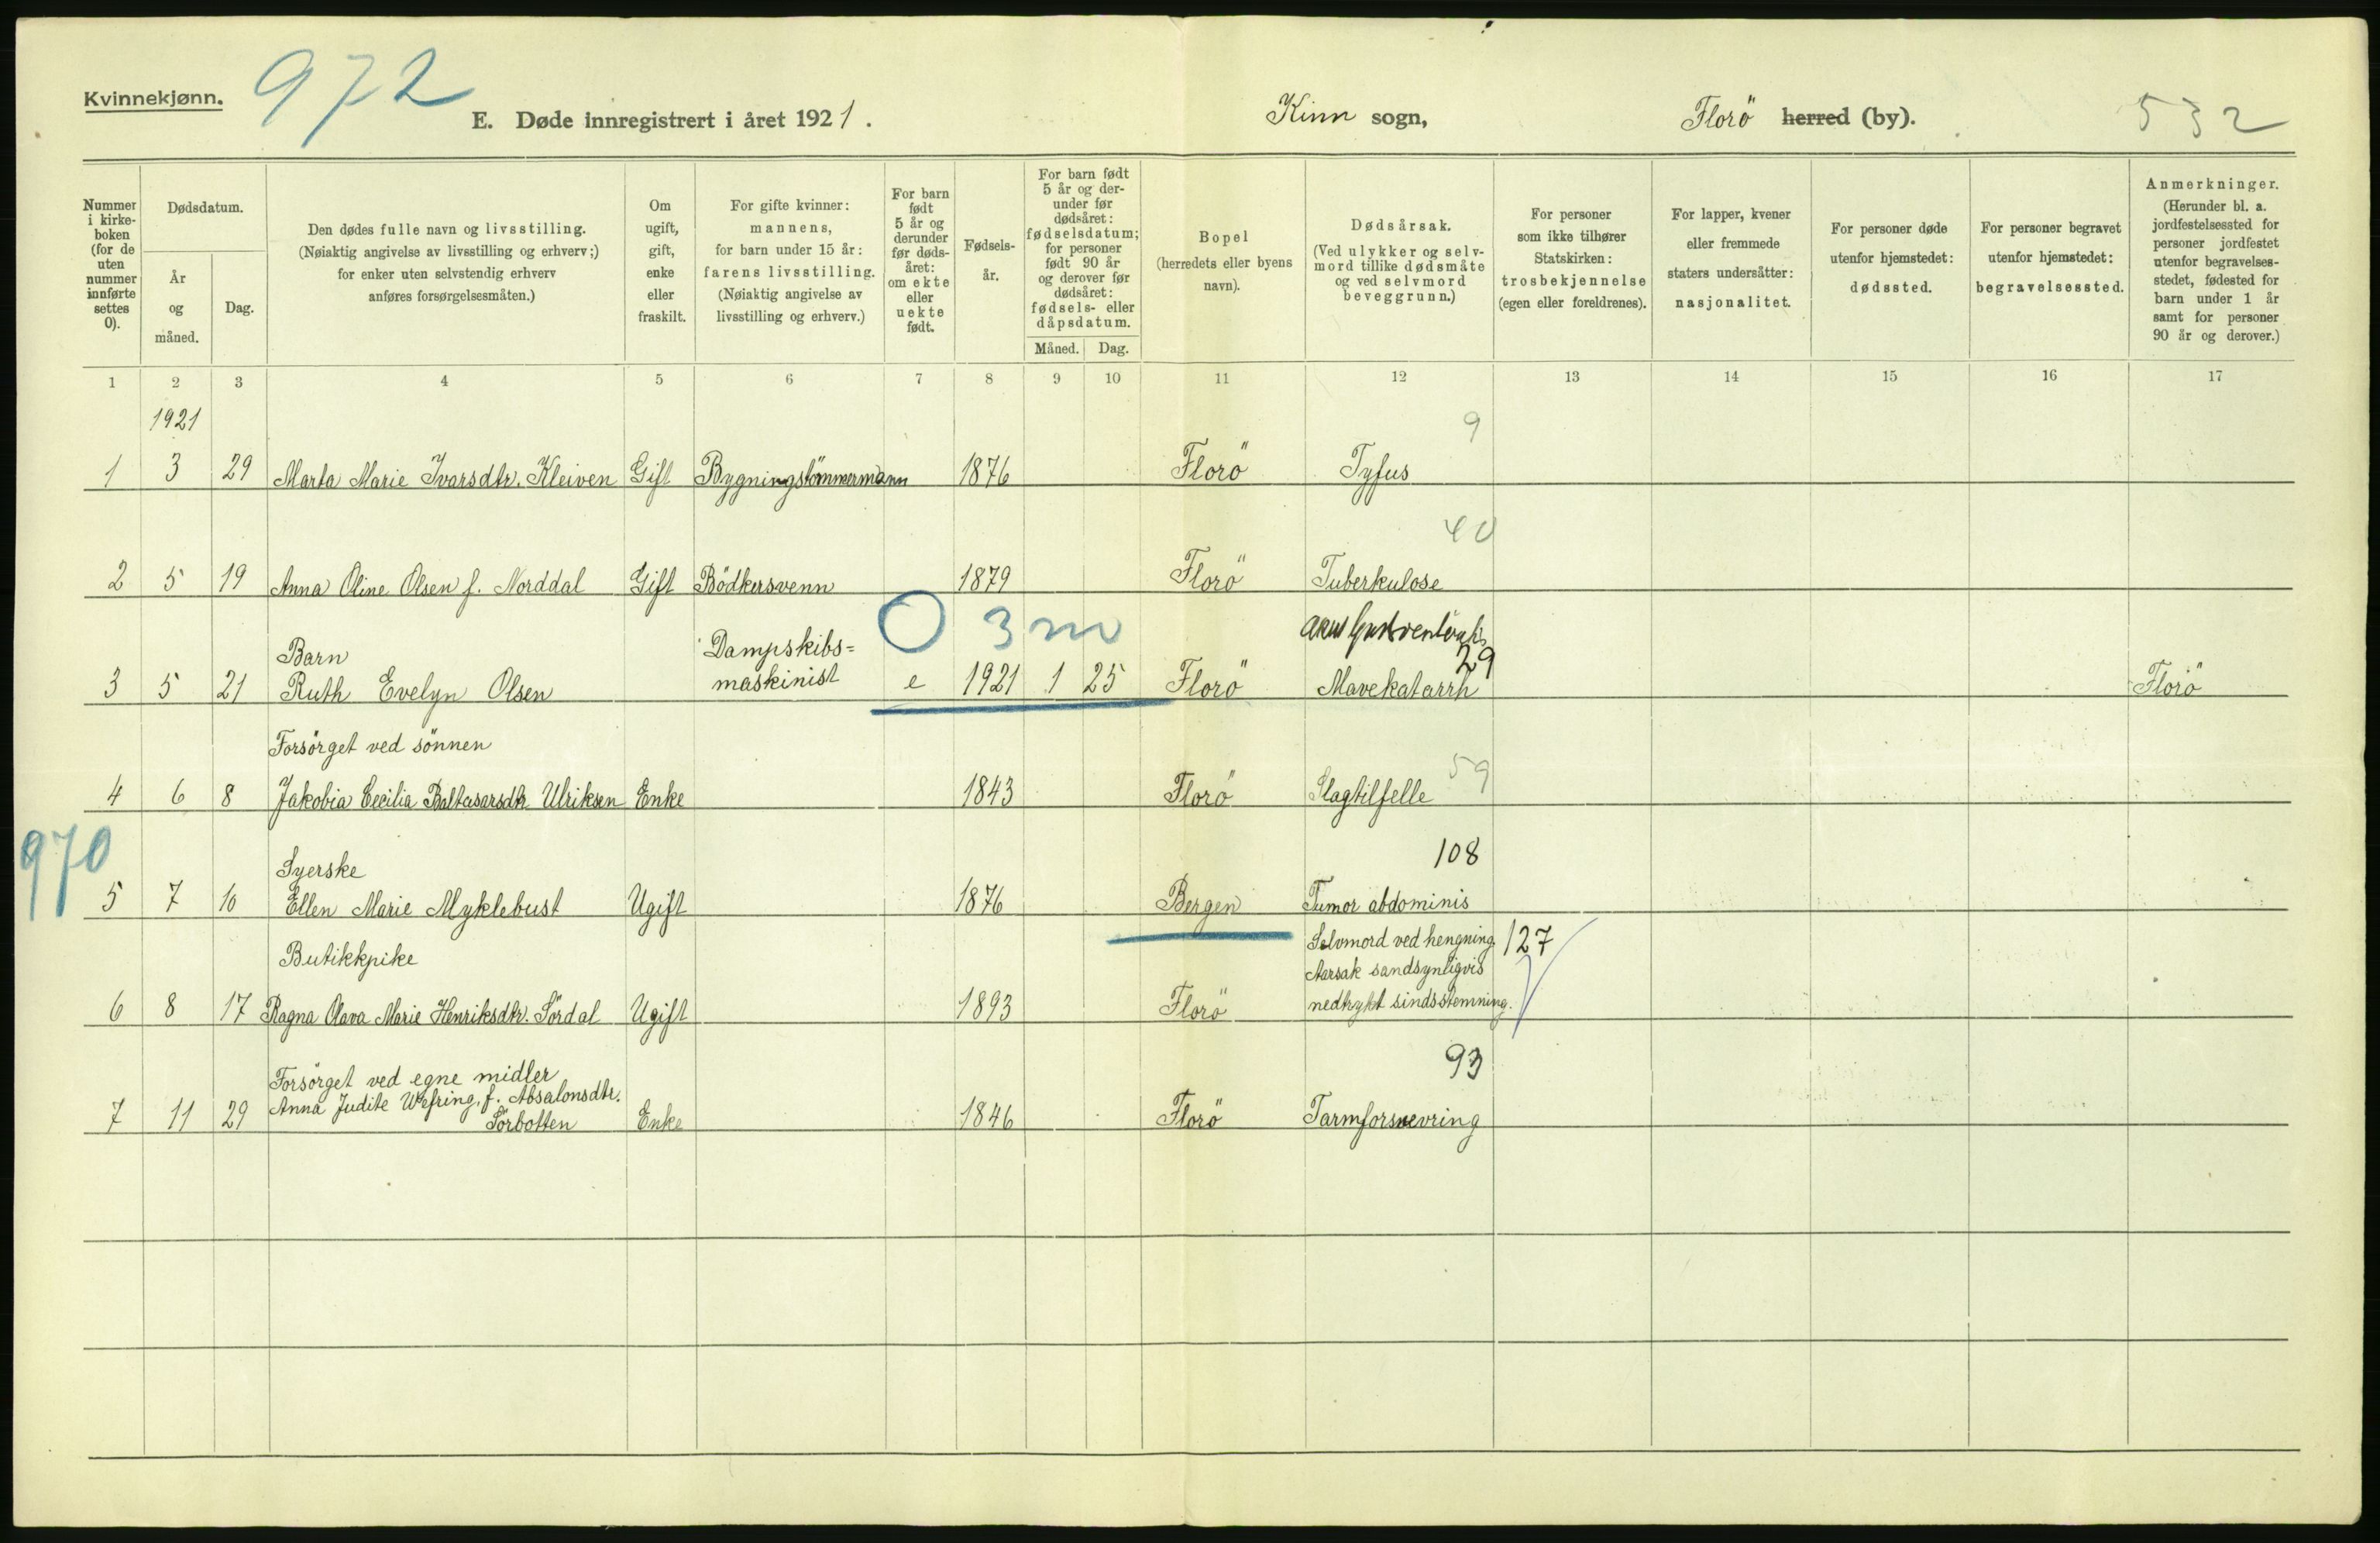 Kvinnekjønn.
972
E. Døde innregistrert i året 1921.
Kinn sogn,
Florö herred (by).
532
Nummer i kirke-boken (for de uten nummer innførte settes 0).
Dødsdatum.
År og måned.
Dag.
Den dødes fulle navn og livsstilling.
(Nøiaktig angivelse av livsstilling og erhverv;)
for enker uten selvstendig erhverv
anføres forsørgelsesmåten.)
Om ugift, gift, enke eller fraskilt.
For gifte kvinner:
mannens,
for barn under 15 år:
farens livsstilling.
(Nøiaktig angivelse av
livsstilling og erhverv.)
For barn født 5 år og derunder før døds-året: om ekte eller uekte født.
Fødsels-år.
For barn født 5 år og der-under før dødsåret: fødselsdatum; for personer født 90 år og derover før dødsåret: fødsels- eller dåpsdatum.
Måned. Dag.
Bopel
(herredets eller byens
navn).
Dødsårsak.
(Ved ulykker og selv-
mord tillike dødsmåte
og ved selvmord
beveggrunn.)
For personer
som ikke tilhører
Statskirken:
trosbekjennelse
(egen eller foreldrenes).
For lapper, kvener
eller fremmede
staters undersåtter:
nasjonalitet.
For personer døde
utenfor hjemstedet:
dødssted.
For personer begravet
utenfor hjemstedet:
begravelsessted.
Anmerkninger.
(Herunder bl. a.
jordfestelsessted for
personer jordfestet
utenfor begravelses-
stedet, fødested for
barn under 1 år
samt for personer
90 år og derover.)
1 2 3 4 5 6 7 8 9 10 11 12 13 14 15 16 17
1921
9
1 3 29 Marta Marie Ivarsdtr. Kleiven Gift Bygningstömmermann 1876 Florö Tyfus
40
2 5 19 Anna Oline Olsen f. Norddal Gift Bödkersvenn 1879 Florö Tuberkulose
O 3 m
Barn Dampskibs=
29
3 5 21 Ruth Evelyn Olsen maskinist e 1921 1 25 Florö Mavekatarrh Florö
Forsörget ved sönnen
59
4 6 8 Jakobia Cecilia Baltasarsdtr Ulriksen Enke 1843 Florö Slagtilfelle
970
108
Syerske
5 7 10 Ellen Marie Myklebust Ugift 1876 Bergen Tumor abdominis
Butikkpike Selvmord ved hengning. 127
Aarsak sandsynligvis
6 8 17 Ragna Olava Marie Henriksdtr. Sördal Ugift 1893 Florö nedtrykt sindsstemning.
93
Forsörget ved egne midler
Anna Judite Wefring, f. Absalonsdtr.
7 11 29 Sörbotten Enke 1846 Florö Tarmforsnevring